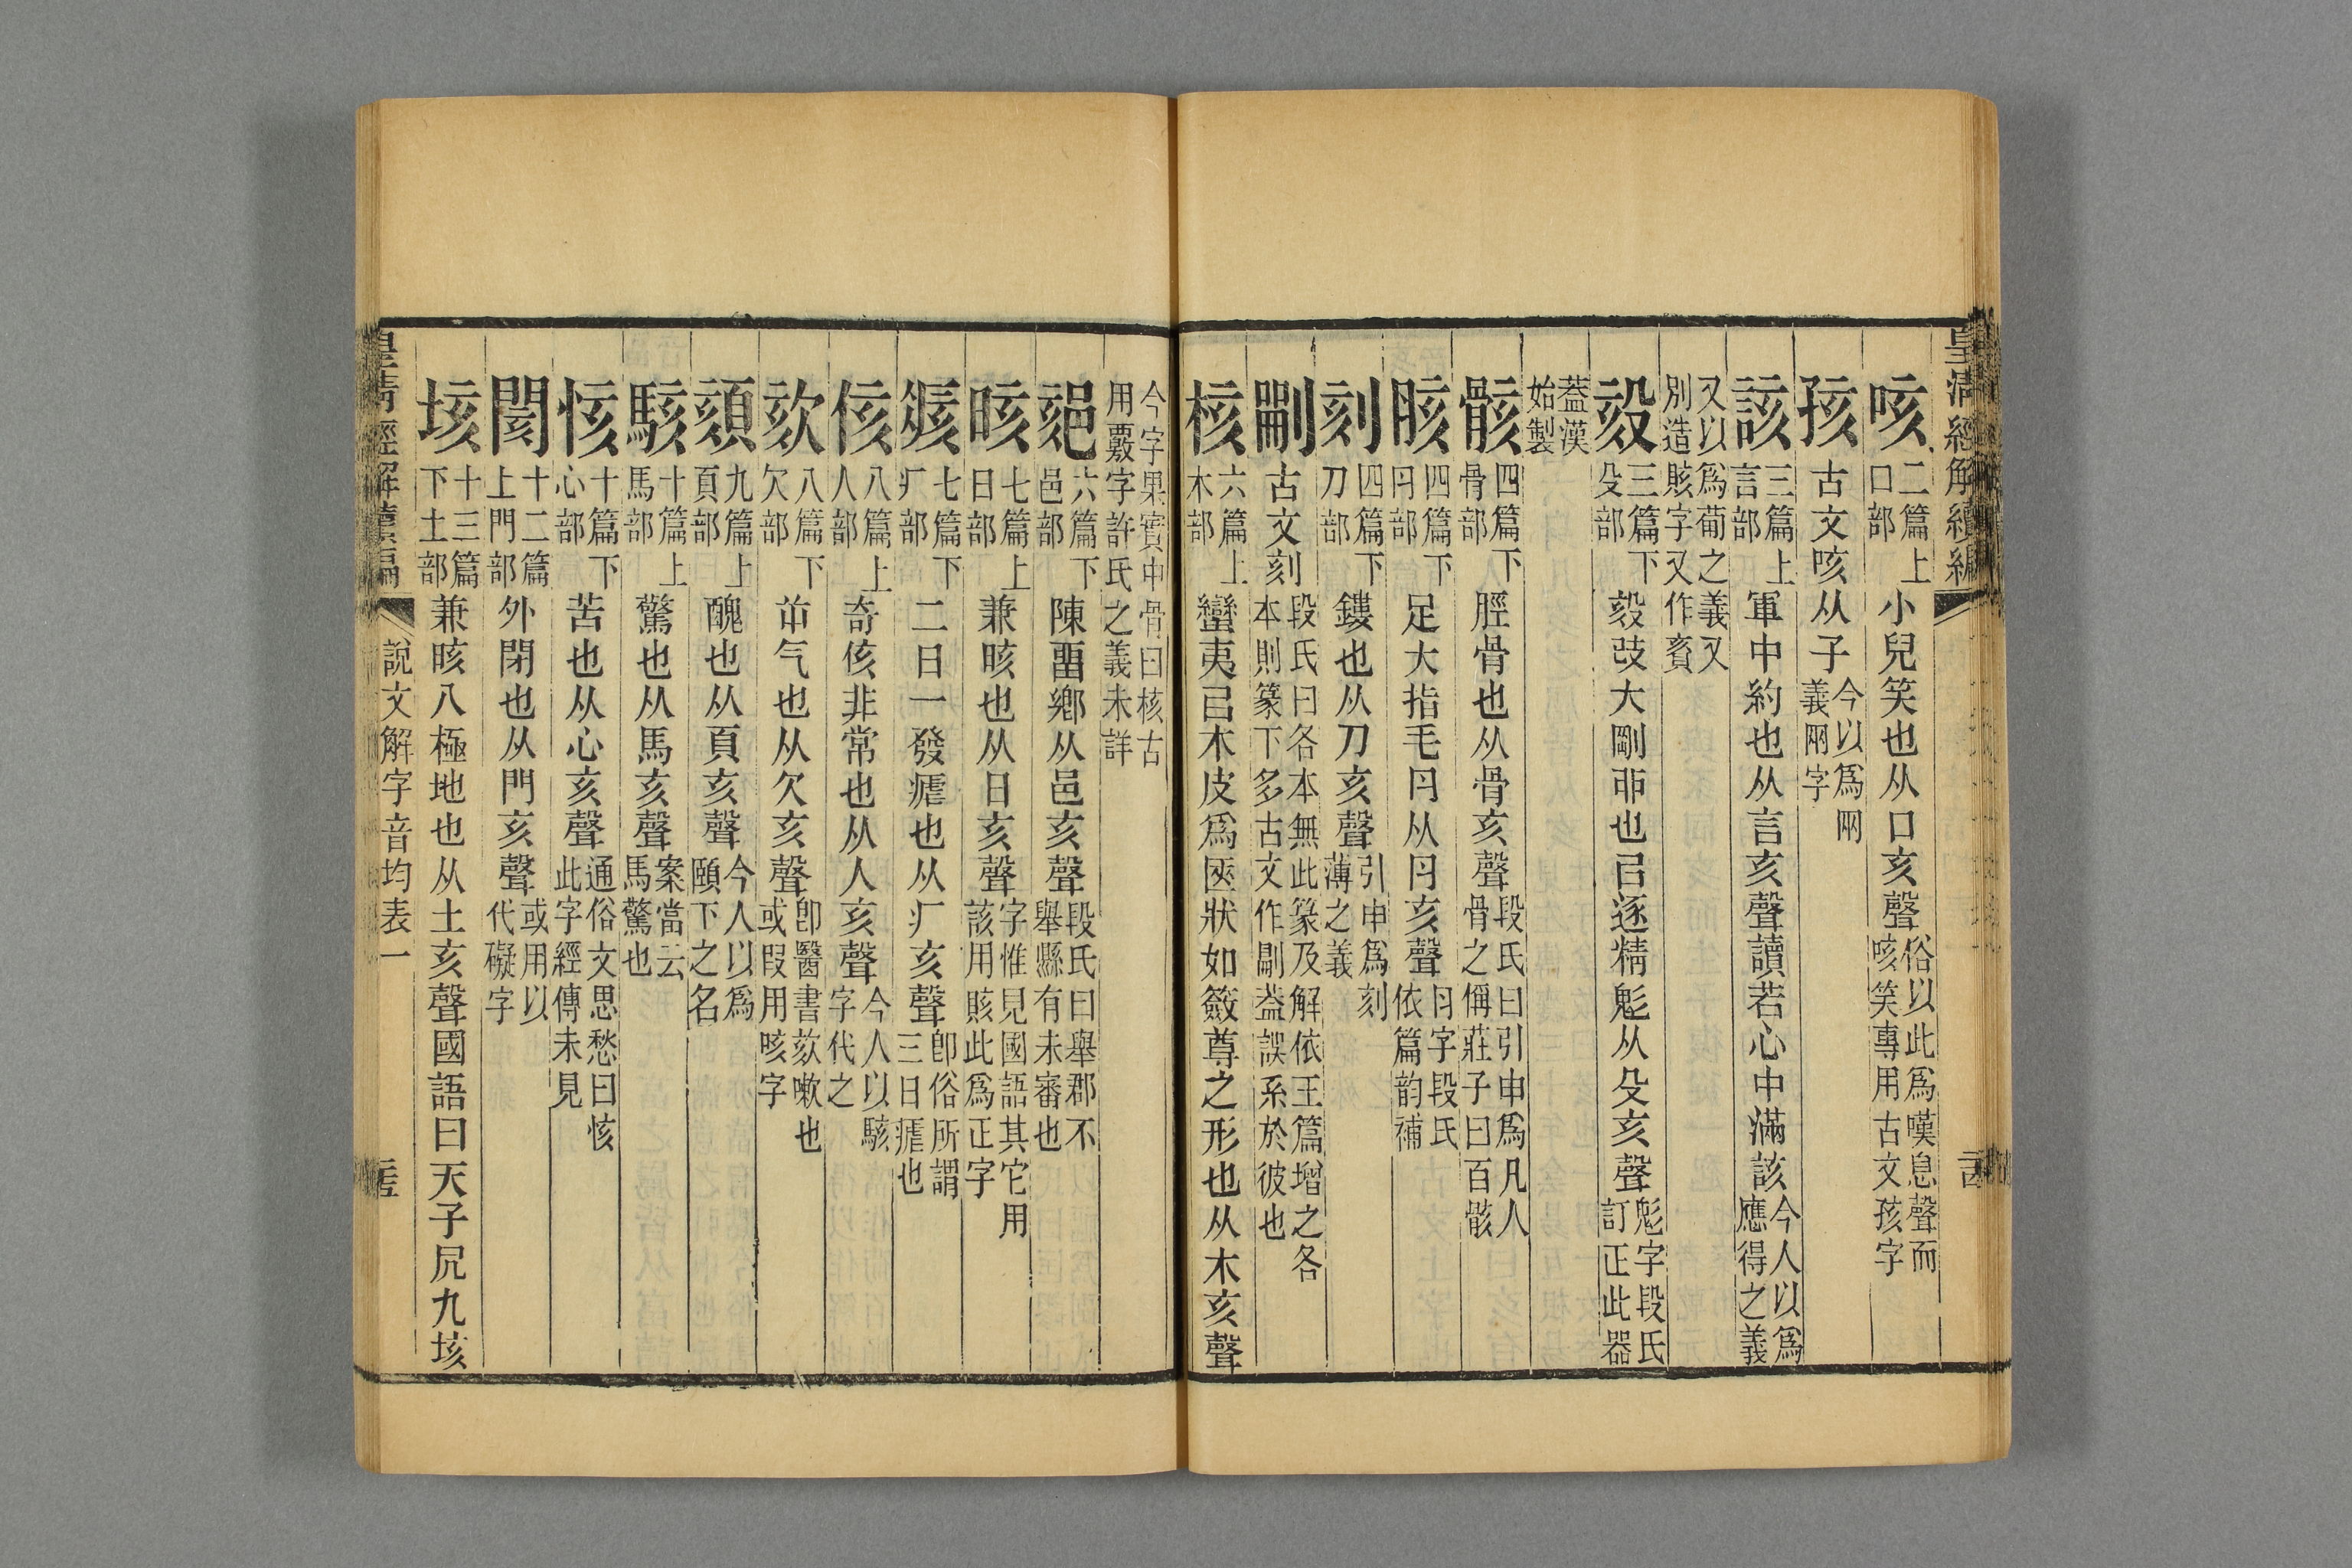 皇清經解續編
咳二篇上口部小兒笑也从口亥聲俗以此爲嘆息聲而咳笑專用古文孩字
孩古文咳从子今以爲兩義兩字
該三篇上言部軍中約也从言亥聲讀若心中滿該今人以爲應得之義
又以爲葡之義又別造賅字又作賌
毅三篇下殳部毅攺大剛卯也㠯逐精鬽从殳亥聲鬽字段氏訂正此器
蓋漢始製
骸四篇下骨部脛骨也从骨亥聲段氏曰引申爲凡人骨之偁莊子曰百骸
胲四篇下冃部足大指毛冃从冃亥聲冃字段氏依篇韵補
刻四篇下刀部鏤也从刀亥聲引申爲刻薄之義
古文刻段氏曰各本無此篆及解依王篇增之各本則篆下多古文作蓋誤系於彼也
核六篇上木部蠻夷㠯木皮爲匧狀如籢尊之形也从木亥聲
今字果實中骨曰核古用覈字許氏之義未詳
郂六篇下邑部陳畱鄉从邑亥聲段氏曰舉郡不舉縣有未審也
晐七篇上日部兼晐也从日亥聲字惟見國語其它用該用賅此爲正字
痎七篇下疒部二日一發瘧也从疒亥聲卽俗所謂三日瘧也
侅八篇上人部奇侅非常也从人亥聲今人以駭字代之
欬八篇下欠部芇气也从欠亥聲卽醫書欬嗽也或叚用咳字
頦九篇上頁部醜也从頁亥聲今人以爲頤下之名
駭十篇上馬部驚也从馬亥聲案當云馬驚也
恀十篇下心部苦也从心亥聲通俗文思愁曰恀此字經傳未見
閡十二篇上門部外閉也从門亥聲或用以代礙字
垓十三篇下土部兼晐八極地也从土亥聲國語曰天子凥九垓
皇清經解續編 說文解字音均表一